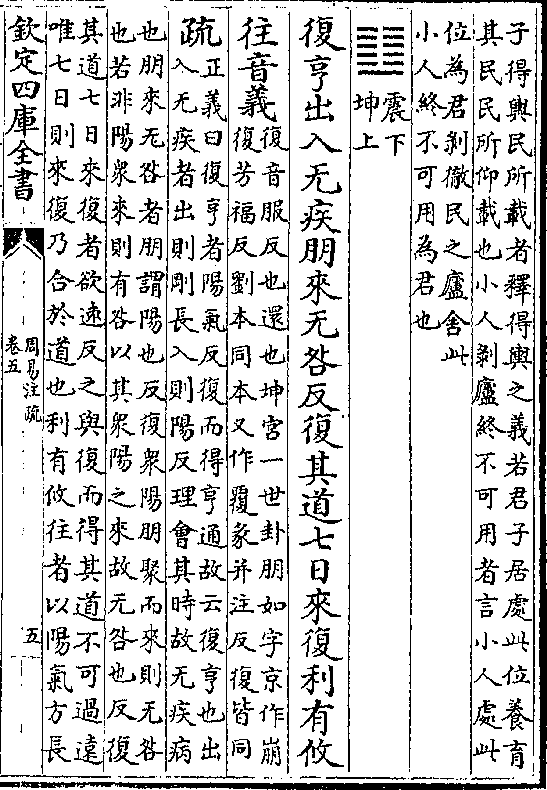 子得輿民所載者釋得輿之義若君子居處此位養育
其民民所仰載也小人剥廬終不可用者言小人處此
位為君剥徹民之廬舍此
小人終不可用為君也
䷗
震下
坤上
復亨出入无疾朋來无咎反復其道七日來復利有攸
往音義
復音服反也還也坤宫一世卦朋如字京作崩
復芳福反劉本同本又作覆彖并注反復皆同
疏
正義曰復亨者陽氣反復而得亨通故云復亨也出
入无疾者出則剛長入則陽反理會其時故无疾病
也朋來无咎者朋謂陽也反復衆陽朋聚而來則无咎
也若非陽衆來則有咎以其衆陽之來故无咎也反復
其道七日來復者欲速反之與復而得其道不可過遠
唯七日則來復乃合於道也利有攸往者以陽氣方長
欽定四庫全書
周易注疏
卷五
五